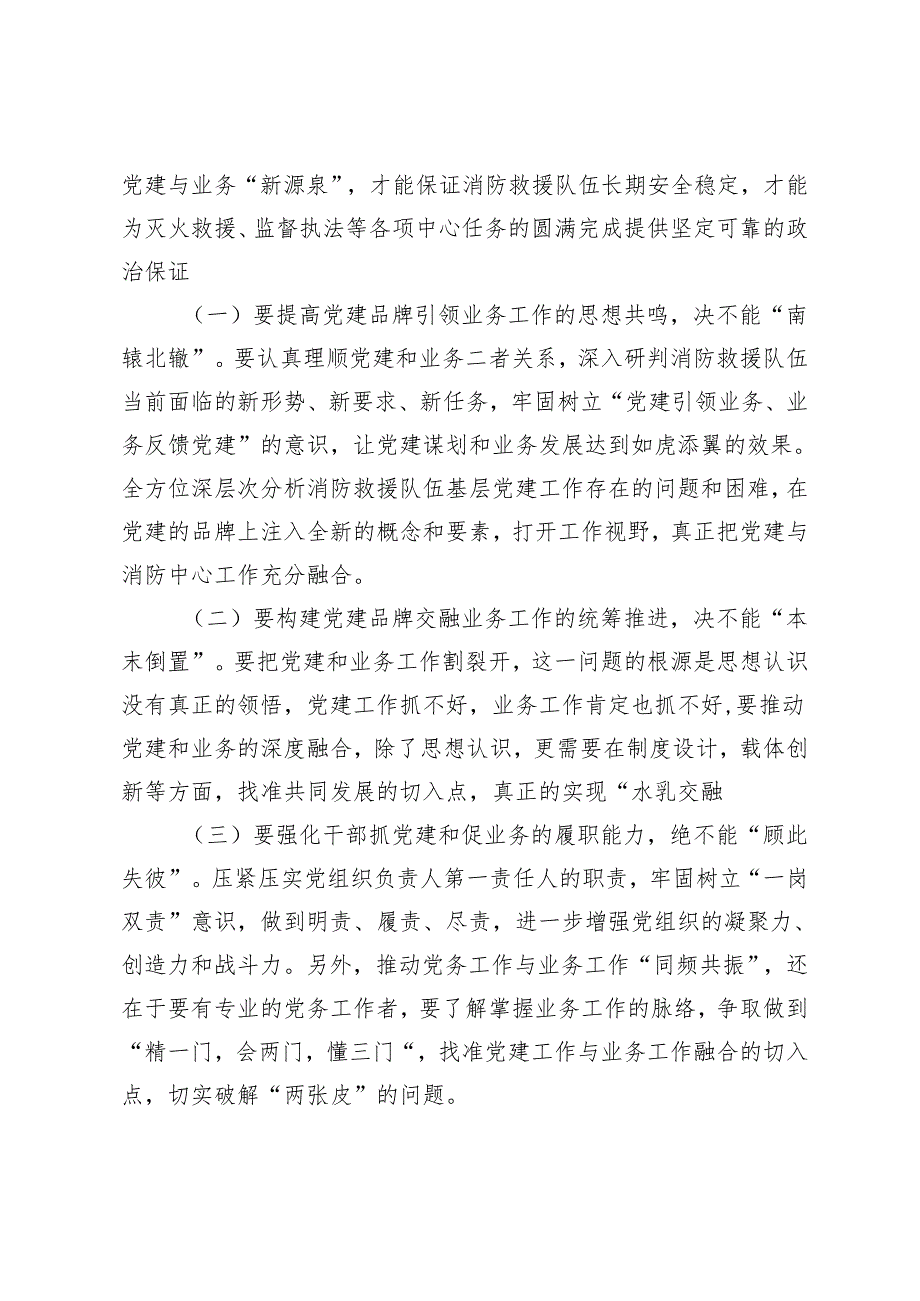 党建与业务“新源泉”，才能保证消防救援队伍长期安全稳定，才能
为灭火救援、监督执法等各项中心任务的圆满完成提供坚定可靠的政
治保证
（一）要提高党建品牌引领业务工作的思想共鸣，决不能“南
辕北辙”。要认真理顺党建和业务二者关系，深入研判消防救援队伍
当前面临的新形势、新要求、新任务，牢固树立“党建引领业务、业
务反馈党建”的意识，让党建谋划和业务发展达到如虎添翼的效果。
全方位深层次分析消防救援队伍基层党建工作存在的问题和困难，在
党建的品牌上注入全新的概念和要素，打开工作视野，真正把党建与
消防中心工作充分融合。
（二）要构建党建品牌交融业务工作的统筹推进，决不能“本
末倒置”。要把党建和业务工作割裂开，这一问题的根源是思想认识
没有真正的领悟，党建工作抓不好，业务工作肯定也抓不好,要推动
党建和业务的深度融合，除了思想认识，更需要在制度设计，载体创
新等方面，找准共同发展的切入点，真正的实现“水乳交融
（三）要强化干部抓党建和促业务的履职能力，绝不能“顾此
失彼”。压紧压实党组织负责人第一责任人的职责，牢固树立“一岗
双责”意识，做到明责、履责、尽责，进一步增强党组织的凝聚力、
创造力和战斗力。另外，推动党务工作与业务工作“同频共振”，还
在于要有专业的党务工作者，要了解掌握业务工作的脉络，争取做到
“精一门，会两门，懂三门“，找准党建工作与业务工作融合的切入
点，切实破解“两张皮”的问题。